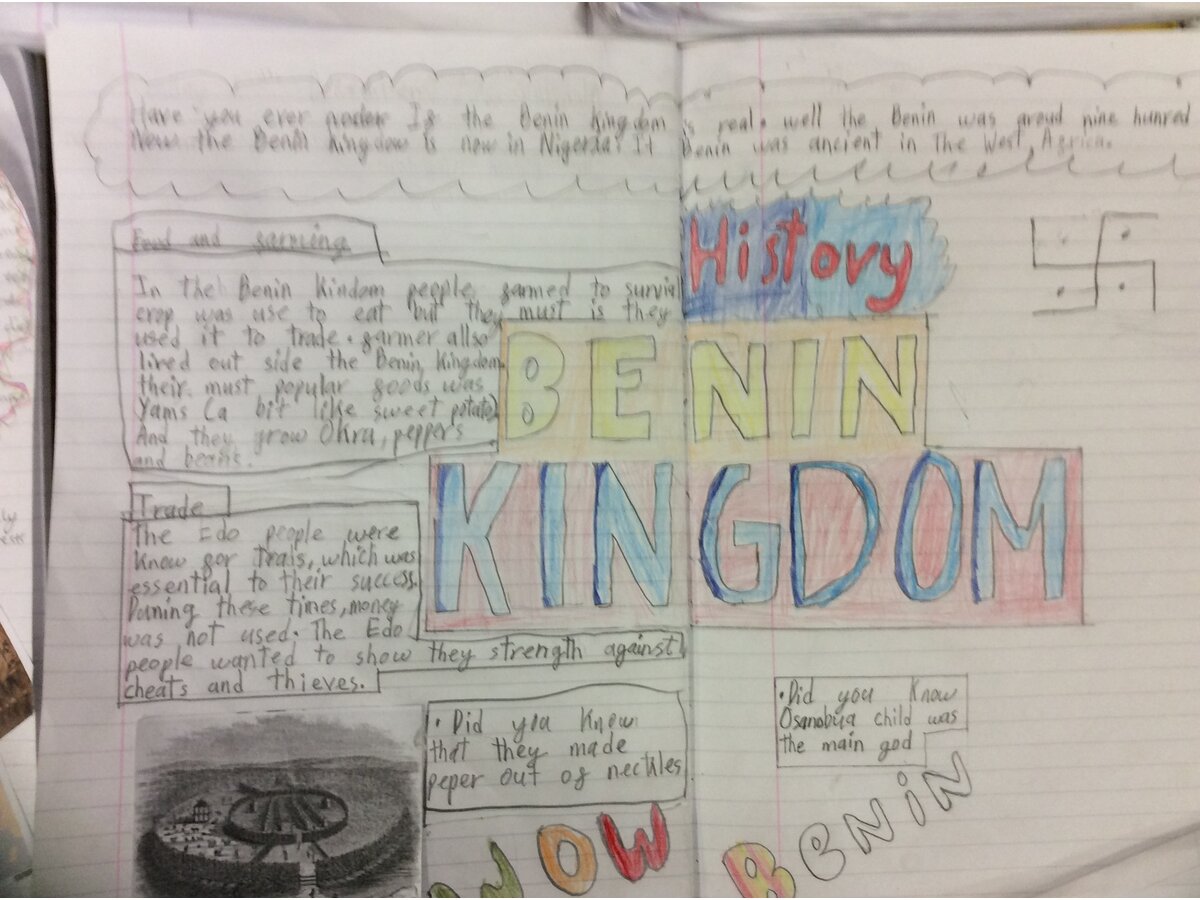 Have you ever noder Is the Benin kingdom is real. well the Benin was aroud nine hunred
Now the Benin kingdow is now in Nigerda? It Benin was ancient in The West Agrica.
History
BENIN
KINGDOM
Food and garming
In the Benin Kindom people garmed to survia
crop was use to eat but they must is they
used it to trade. garmer allso
lired out side the Benin Kingdom
their must popular goods was
Yams Ca bit like sweet potato)
And they grow Okra, peppers
and beans.
Trade
The Edo people were
Know gor Trais, which was
essential to their success.
Duning these times, money
was not used. The Edo
people wanted to show they strength against
cheats and thieves.
• Did you Know
that they made
peper out og neckles
• Did you Know
Osanobua child was
the main god
OW
BENiN